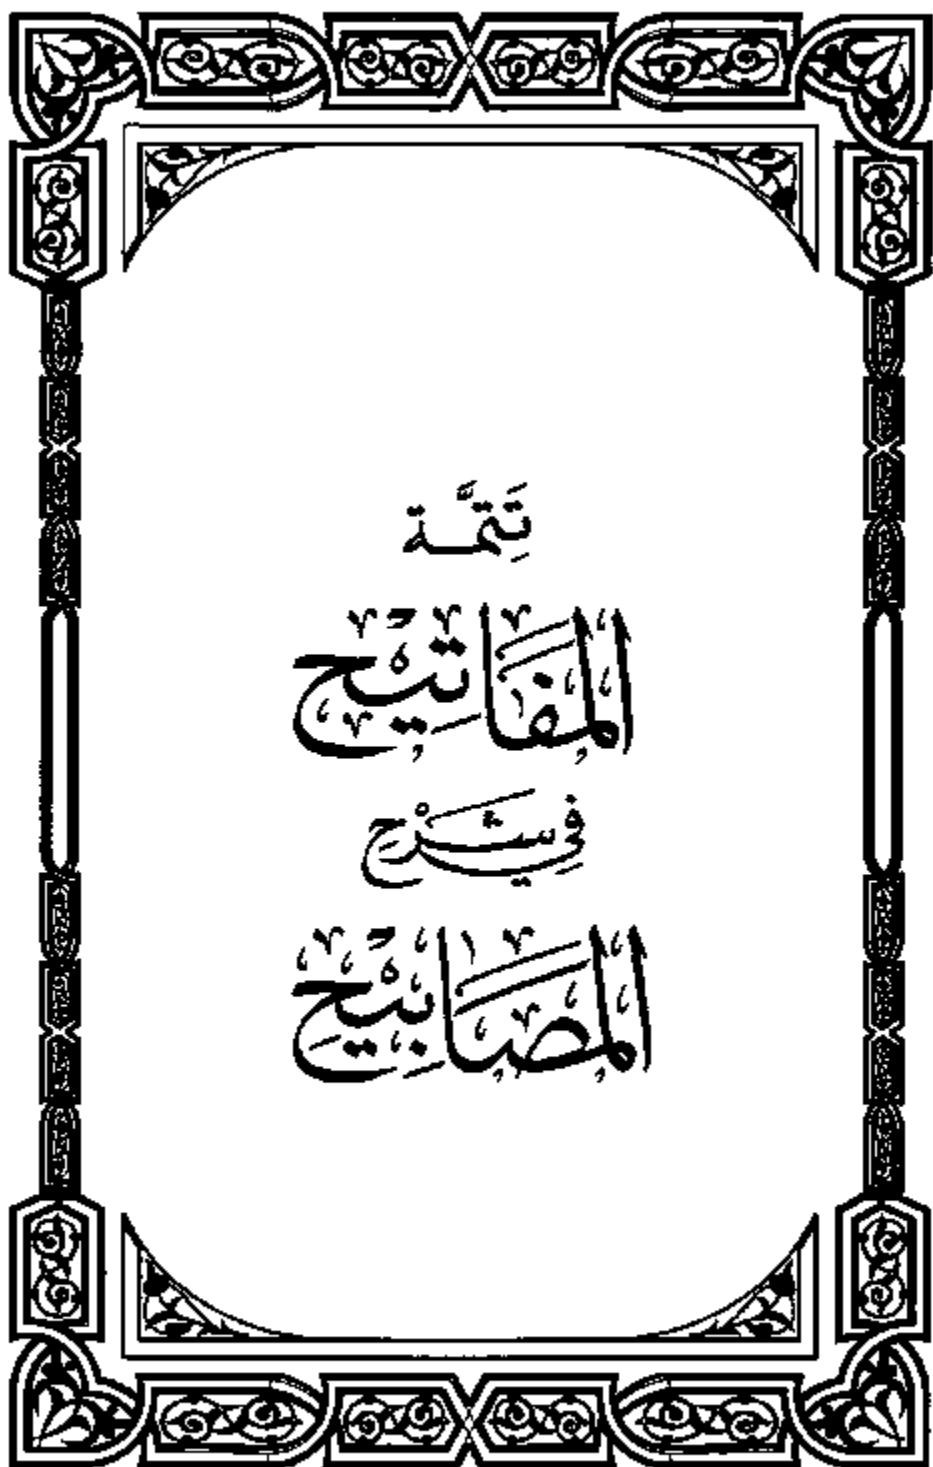 تَتِمَّة
المفَاتِيْح
فِي شَرْح
المصَابِيْح